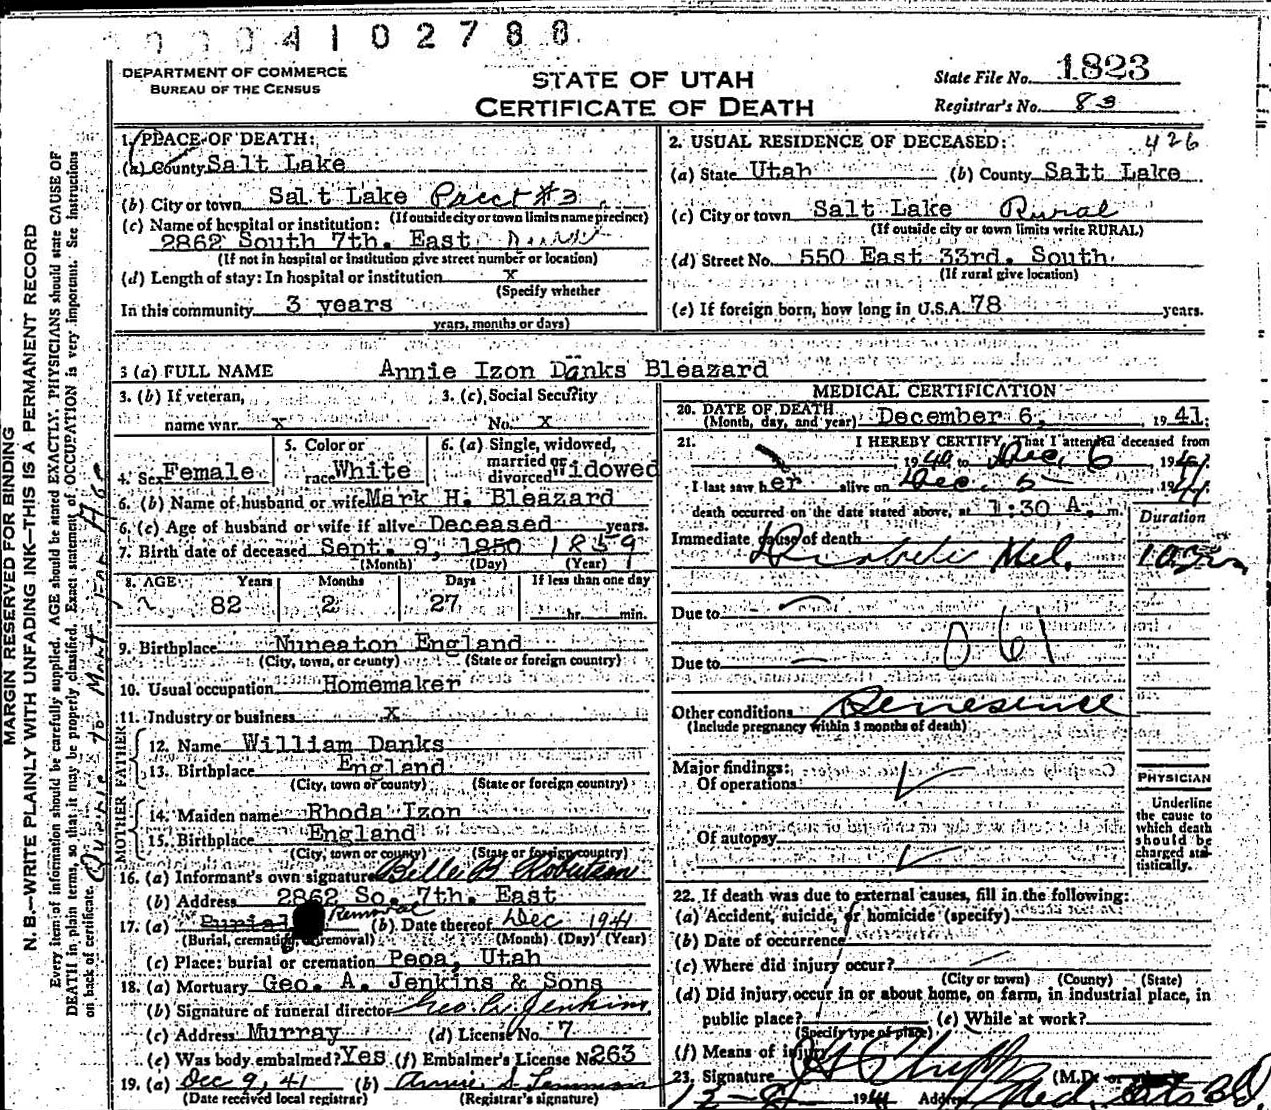 0004102788
DEPARTMENT OF COMMERCE
BUREAU OF THE CENSUS
STATE OF UTAH
CERTIFICATE OF DEATH
State File No. 1823
Registrar's No. 83
1. PLACE OF DEATH:
(a) County Salt Lake
(b) City or town Salt Lake Prect #3
(If outside city or town limits name precinct)
(c) Name of hospital or institution:
2862 South 7th. East
(If not in hospital or institution give street number or location)
(d) Length of stay: In hospital or institution x
(Specify whether
In this community 3 years
years, months or days)
2. USUAL RESIDENCE OF DECEASED: 426
(a) State Utah (b) County Salt Lake
(c) City or town Salt Lake Rural
(If outside city or town limits write RURAL)
(d) Street No. 550 East 33rd. South
(If rural give location)
(e) If foreign born, how long in U.S.A. 78 years.
3 (a) FULL NAME Annie Izon Danks Bleazard
3. (b) If veteran, name war x
3. (c) Social Security No. x
4. Sex Female
5. Color or race White
6. (a) Single, widowed, married or divorced Widowed
6. (b) Name of husband or wife Mark H. Bleazard
6. (c) Age of husband or wife if alive Deceased years.
7. Birth date of deceased Sept. 9, 1850 1859
(Month) (Day) (Year)
8. AGE: Years Months Days If less than one day
82 2 27 hr. min.
9. Birthplace Nuneaton England
(City, town, or county) (State or foreign country)
10. Usual occupation Homemaker
11. Industry or business x
FATHER
12. Name William Danks
13. Birthplace England
(City, town or county) (State or foreign country)
MOTHER
14. Maiden name Rhoda Izon
15. Birthplace England
(City, town or county) (State or foreign country)
16. (a) Informant's own signature Belle B Robertson
(b) Address 2862 So. 7th. East
17. (a) Burial Removal (b) Date thereof Dec 1941
(Burial, cremation, or removal) (Month) (Day) (Year)
(c) Place: burial or cremation Peoa, Utah
18. (a) Mortuary Geo. A. Jenkins & Sons
(b) Signature of funeral director Geo. A. Jenkins
(c) Address Murray (d) License No. 7
(e) Was body embalmed? Yes (f) Embalmer's License No. 263
19. (a) Dec 9, 41 (b) Annie S.
(Date received local registrar) (Registrar's signature)
MEDICAL CERTIFICATION
20. DATE OF DEATH
(Month, day, and year) December 6, 1941
21. I HEREBY CERTIFY, That I attended deceased from
1940 to Dec. 6 1941
I last saw her alive on Dec. 5 1941
death occurred on the date stated above, at 1:30 A. m.
Duration
Immediate cause of death
Diabetes Mel.
Due to
061
Due to
Other conditions Senescence
(Include pregnancy within 3 months of death)
Major findings:
Of operations
Of autopsy
PHYSICIAN
Underline
the cause to
which death
should be
charged sta-
tistically.
22. If death was due to external causes, fill in the following:
(a) Accident, suicide, or homicide (specify)
(b) Date of occurrence
(c) Where did injury occur?
(City or town) (County) (State)
(d) Did injury occur in or about home, on farm, in industrial place, in
public place? (e) While at work?
(Specify type of place)
(f) Means of injury
23. Signature (M.D. or
1941 Address Med.
MARGIN RESERVED FOR BINDING
N. B.—WRITE PLAINLY WITH UNFADING INK—THIS IS A PERMANENT RECORD
Every item of information should be carefully supplied. AGE should be stated EXACTLY. PHYSICIANS should state CAUSE OF
DEATH in plain terms, so that it may be properly classified. Exact statement of OCCUPATION is very important. See instructions
on back of certificate.